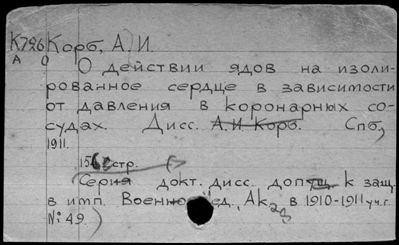 К796 Корб, А. И.
А О
О действии ядов на изоли-
рованное сердце в зависимости
от давления в коронарных со-
судах. Дисс. А. И. Корб. Спб,
1911.
стр.
(Серия докт. дисс. допущ. к защ.
в имп. Военно- ед. Ак. в 1910-1911 уч. г.
№ 49.)